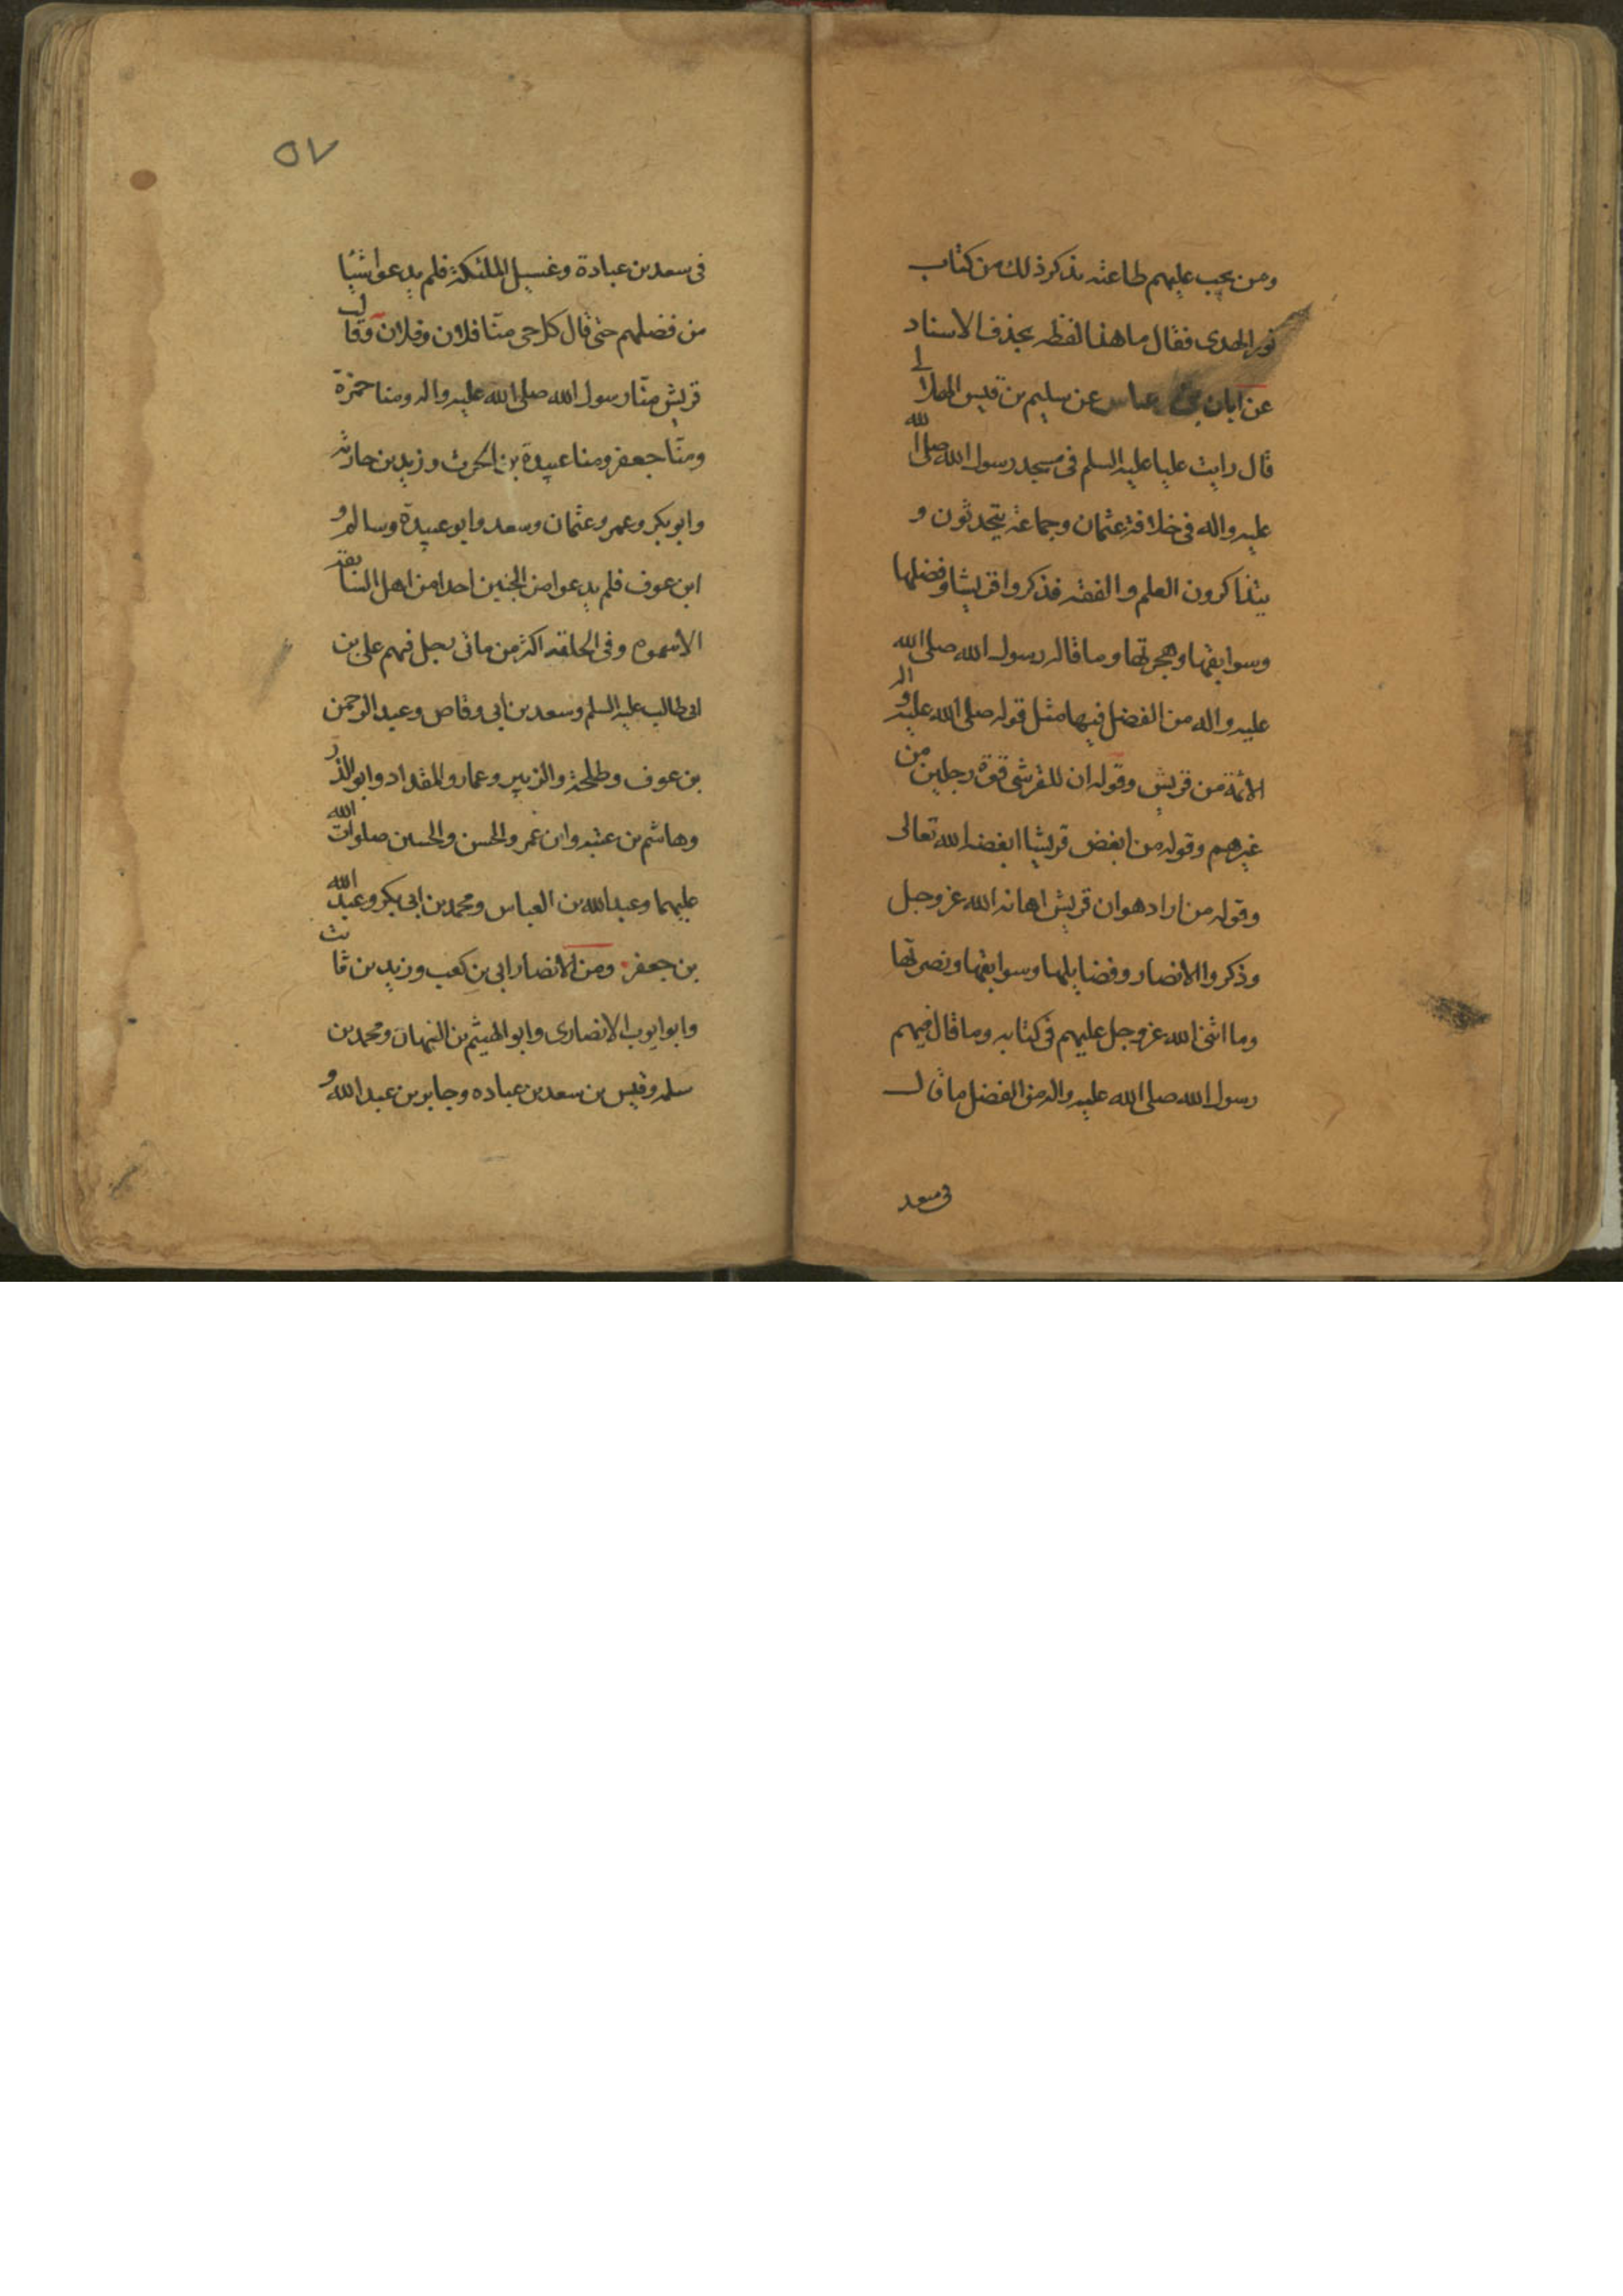 ومن يجب عليهم طاعته نذكر ذلك من كتاب
نور الهدى فقال ما هذا لفظه بحذف الاسناد
عن ابان بن عياش عن سليم بن قيس الهلالى
قال رايت عليا عليه السلم فى مسجد رسول الله صلى الله
عليه واله فى خلافة عثمان وجماعة يتحدثون و
يتذاكرون العلم والفقه فذكروا قريشا وفضلها
وسوابقها وهجرتها وما قاله رسول الله صلى الله
عليه واله من الفضل فيها مثل قوله صلى الله عليه واله
الائمة من قريش وقوله ان للقرشى قوة رجلين من
غيرهم وقوله من ابغض قريشا ابغضه الله تعالى
وقوله من اراد هوان قريش اهانه الله عز وجل
وذكروا الانصار وفضايلها وسوابقها ونصرتها
وما اثنى الله عز وجل عليهم فى كتابه وما قال فيهم
رسول الله صلى الله عليه واله من الفضل ما قال
فى سعد
٥٧
فى سعد بن عبادة وغسيل الملئكة فلم يدعوا شيئا
من فضلهم حتى قال كل حى منا فلان وفلان وقالت
قريش منا رسول الله صلى الله عليه واله ومنا حمزة
ومنا جعفر ومنا عبيدة بن الحرث وزيد بن حارثة
وابو بكر وعمر وعثمان وسعد وابو عبيدة وسالم و
ابن عوف فلم يدعوا من الحيين احدا من اهل السابقة
الا سموه وفى الحلقة اكثر من ماتى رجل فهم على بن
ابى طالب عليه السلم وسعد بن ابى وقاص وعبد الرحمن
بن عوف وطلحة والزبير وعمار والمقداد وابو الذر
وهاشم بن عتبه وابن عمر والحسن والحسين صلوات الله
عليهما وعبد الله بن العباس ومحمد بن ابى بكر وعبد الله
بن جعفر ومن الانصار ابى بن كعب وزيد بن ثابت
وابو ايوب الانصارى وابو الهيثم بن التيهان ومحمد بن
سلمه وقيس بن سعد بن عباده وجابر بن عبد الله و